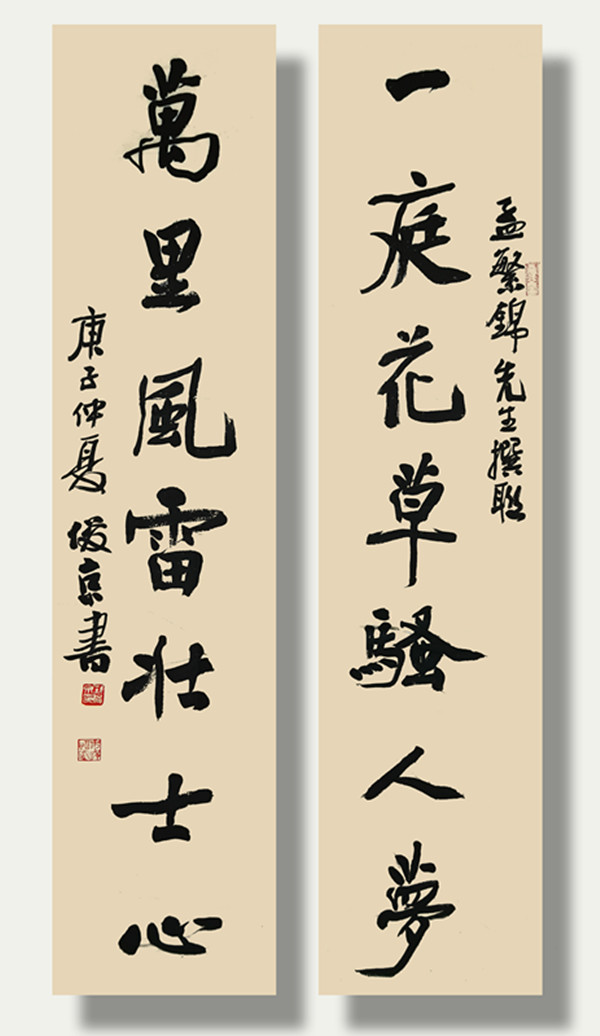 孟繁錦先生撰聯
一庭花草騷人夢
萬里風雷壯士心
庚子仲夏俊京書